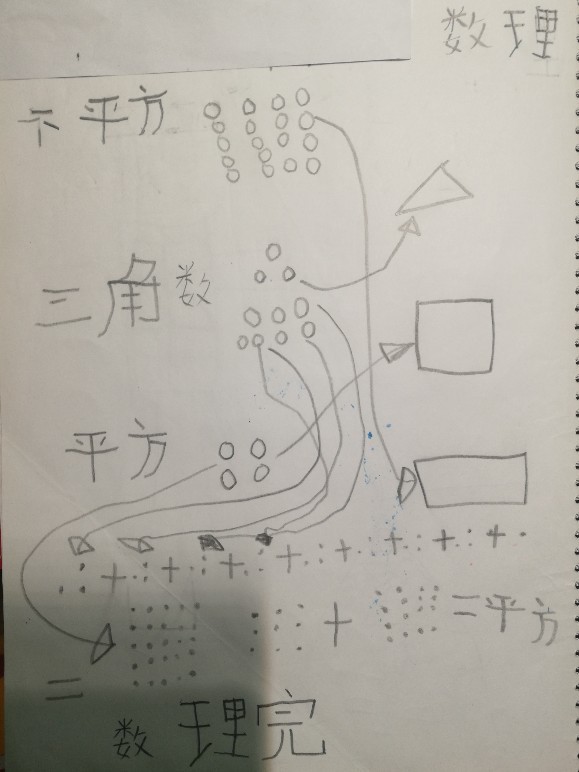 数理
不平方
三角数
平方
+ + + + + + + +
= + =平方
数理完